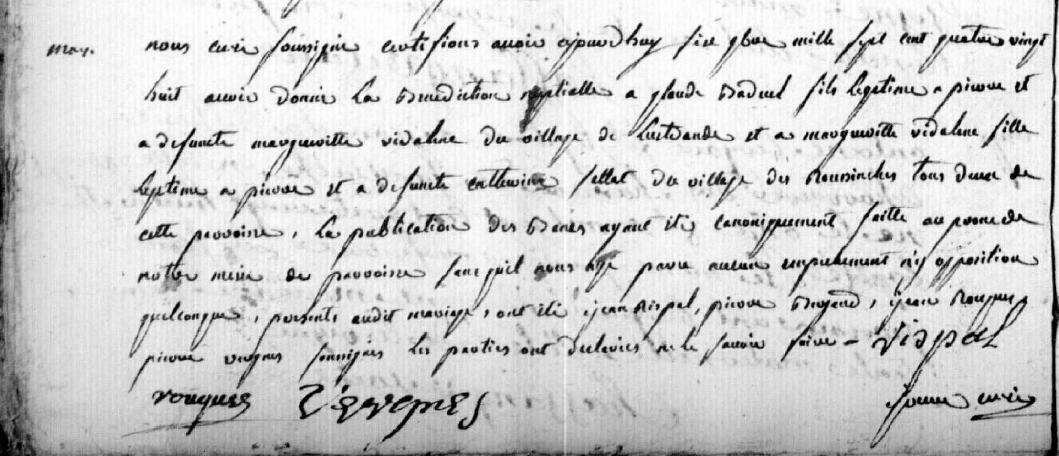 mar.
nous curé soussigné certifions avoir ajourdhuy six 9bre mille sept cent quatre vingt
huit avoir donné la benediction nuptialle a glaude baduel fils legitime a pierre et
a defunte margueritte vidaline du village de et a margueritte vidaline fille
legitime a pierre et a defunte catterine sellat du village des tous deux de
cette parroisse, la publication des bancs ayant été canoniquement faitte au prone de
notre messe de parroisse sans quil nous aye paru aucun empechement n'y opposition
quelconque, presents audit mariage, ont été jean vispal, pierre, jean rouques
pierre soussignés les parties ont declarées ne le savoir faire - vispal
rouques curé